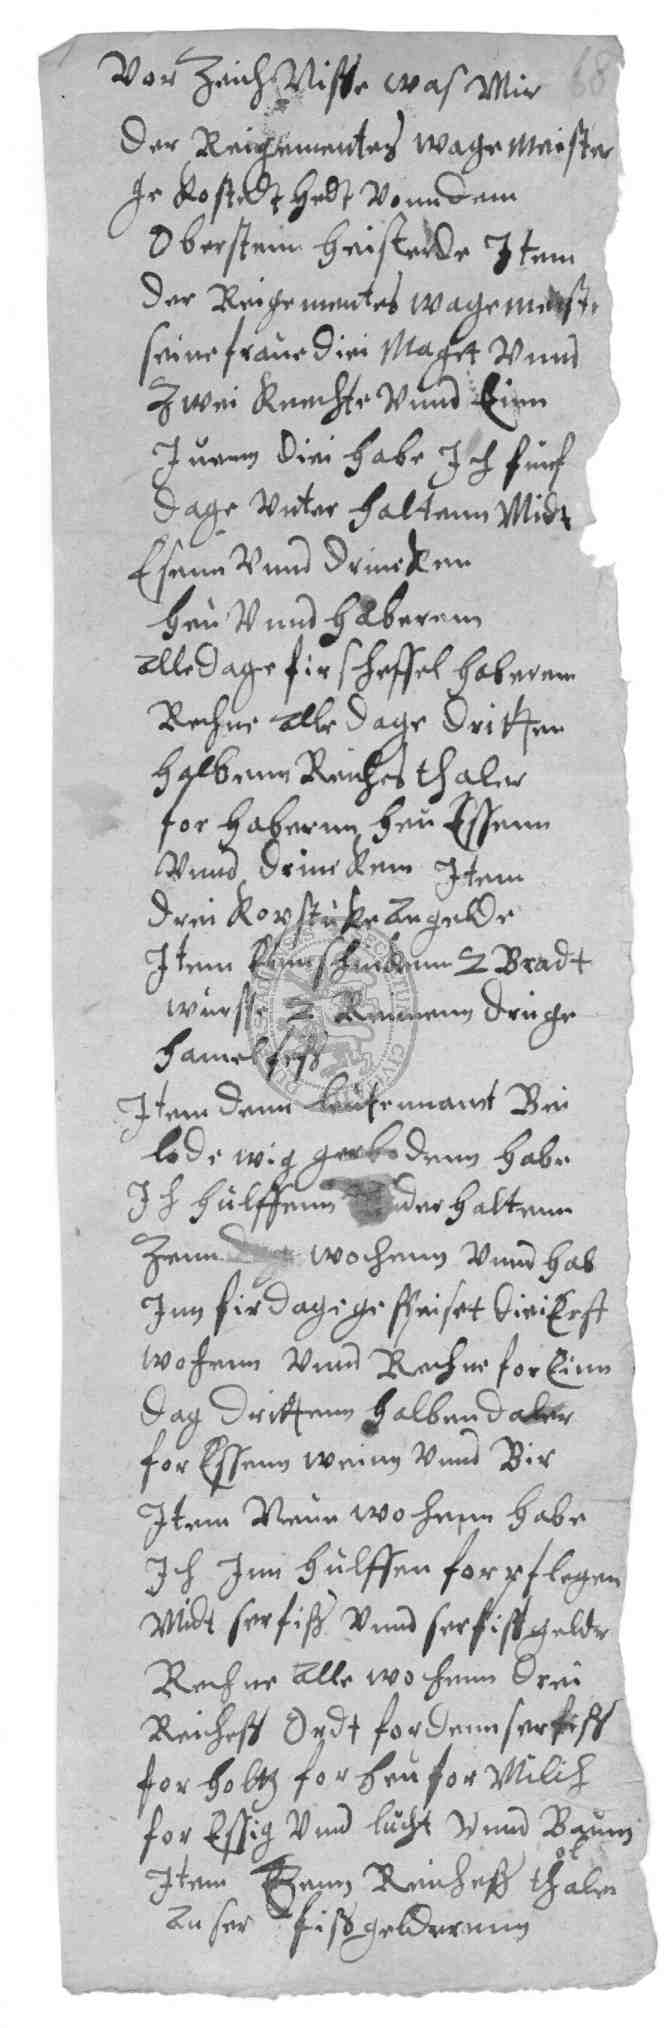 Vor Zeich Nisse was Mir 68
der Reigementes wagemeister
Je kostedt hedt vonn dem
Oberstein heisterde Item
der Reigementes wagemeiste
seine fraue diei Maget Vnnd
Zwei knechte Vnnd Einn
Juenn diei habe Ich fünf
dage Vnter haltenn Midt
Esenn Vnnd drincken
heu Vnnd haberenn
alle dage fir scheffel haberenn
Rechne alle dage dritten
halbenn Reiches thaler
for haberenn heu Essenn
Vnnd drincken Item
drei kopstücke an gelde
Item Einn schinckenn 2 Bradt
würste 2 Remenn drüge
hamelfeß
Item denn leutennamt Bei
lode wig gerbodenn habe
Ich hülffenn vnderhaltenn
Zenn wochenn Vnnd hab
Inn fir dage gespeiset diei Erst
wochenn Vnnd Rechne for Einn
dag drittenn halben daler
for Essenn weinn Vnnd Bir
Item Neun wochenn habe
Ich Inn hülffen forpflegen
Midt serfiß Vnnd serfißgelde
Rechne alle wochenn drei
Reicheß Ordt for denn serfiß
for holtz for heu for Milich
for Essig Vnnd lucht Vnnd Baum
öl
Item Zenn Reicheß thaler
an ser fißgelderenn